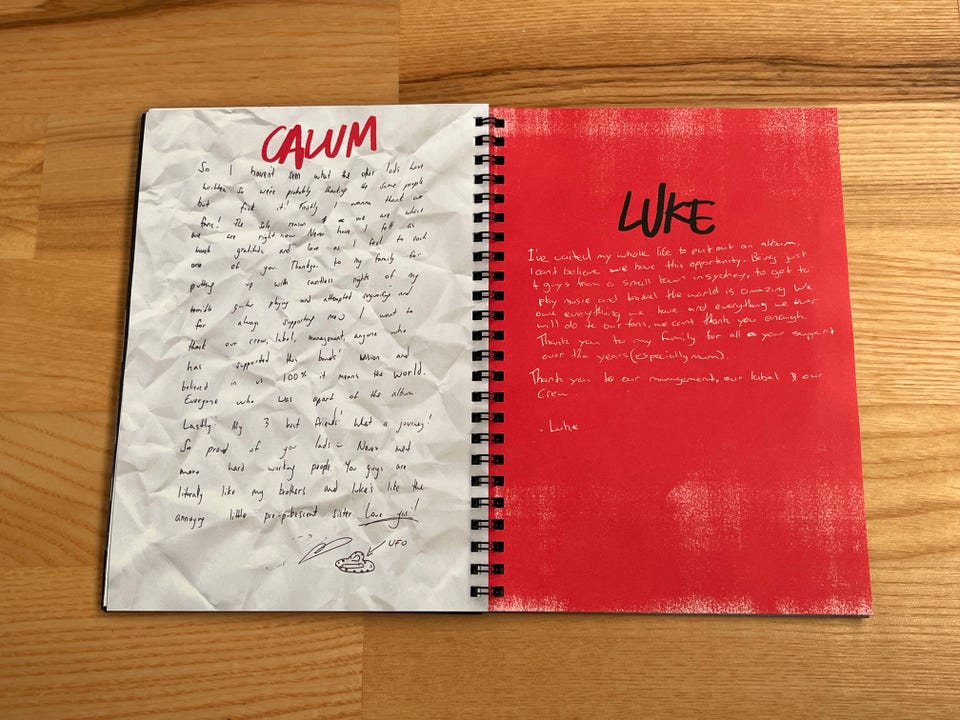 CALUM
So I haven't seen what the other lads have
written so we're probably thanking the same people
but fuck it! Firstly I wanna thank our
fans! The sole reason we are where
we are right now. Never have I felt as
much gratitude and love as I feel to each
one of you. Thankyou to my family for
putting up with countless nights of my
terrible guitar playing and attempted songwriting and
for always supporting me. I want to
thank our crew, label, management, anyone who
has supported this bands' vision and
believed in us 100% it means the world.
Everyone who was apart of the album
Lastly! My 3 best friends! What a journey!
So proud of you lads - Never met
more hard working people. You guys are
literally like my brothers and Luke's like the
annoying little pre-pubescent sister. Love you!
UFO
LUKE
I've waited my whole life to put out an album.
I cant believe we have this opportunity. Being just
4 guys from a small town in sydney, to get to
play music and travel the world is amazing. We
owe everything we have and everything we ever
will do to our fans, we cant thank you enough.
Thank you to my family for all your support
over the years (especially mum).
Thank you to our management, our label & our
crew.
- Luke